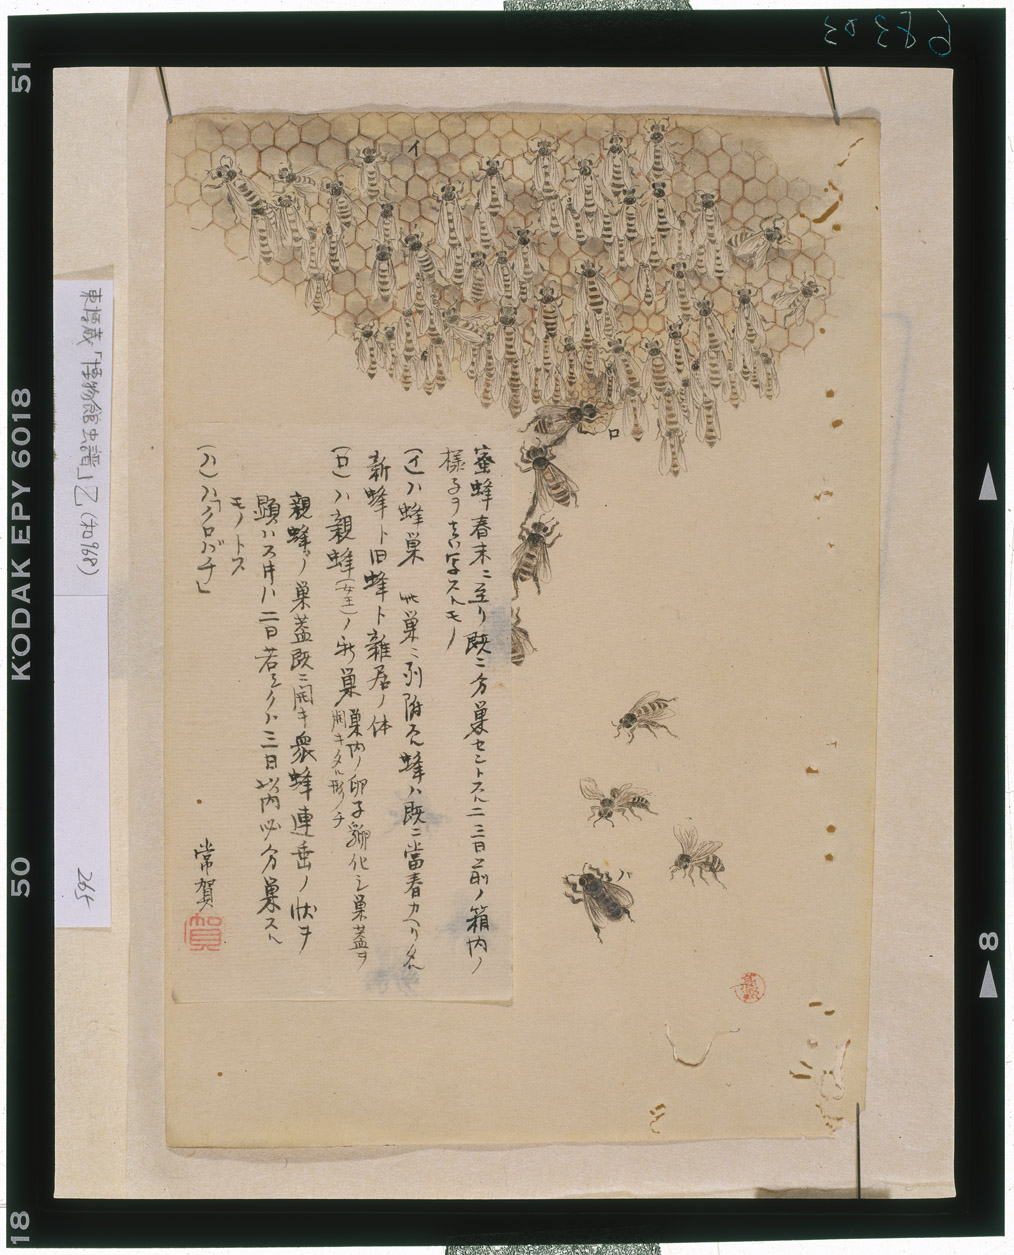 蜜蜂春末ニ至リ既ニ分巣セントスル二三日前ノ箱内ノ
様子ヲ真写ストモノ
(イ)ハ蜂巣 此巣ニ列附スル蜂ハ既ニ當春カヘリタル
新蜂ト旧蜂ト雑居ノ体
(ロ)ハ親蜂(女王)ノ新巣 巣内ノ卵子孵化シ巣蓋ヲ
開キタル形ノチ
親蜂ノ巣蓋既ニ開キ衆蜂連垂ノ状ヲ
顕ハス片ハ二日若シクハ三日以内必分巣スル
モノトス
(ハ)ハ「クロバチ」
常賀
イ
ロ
ハ
東博蔵「博物館虫譜」乙(和968)
265
51
KODAK EPY 6018
50
18
8